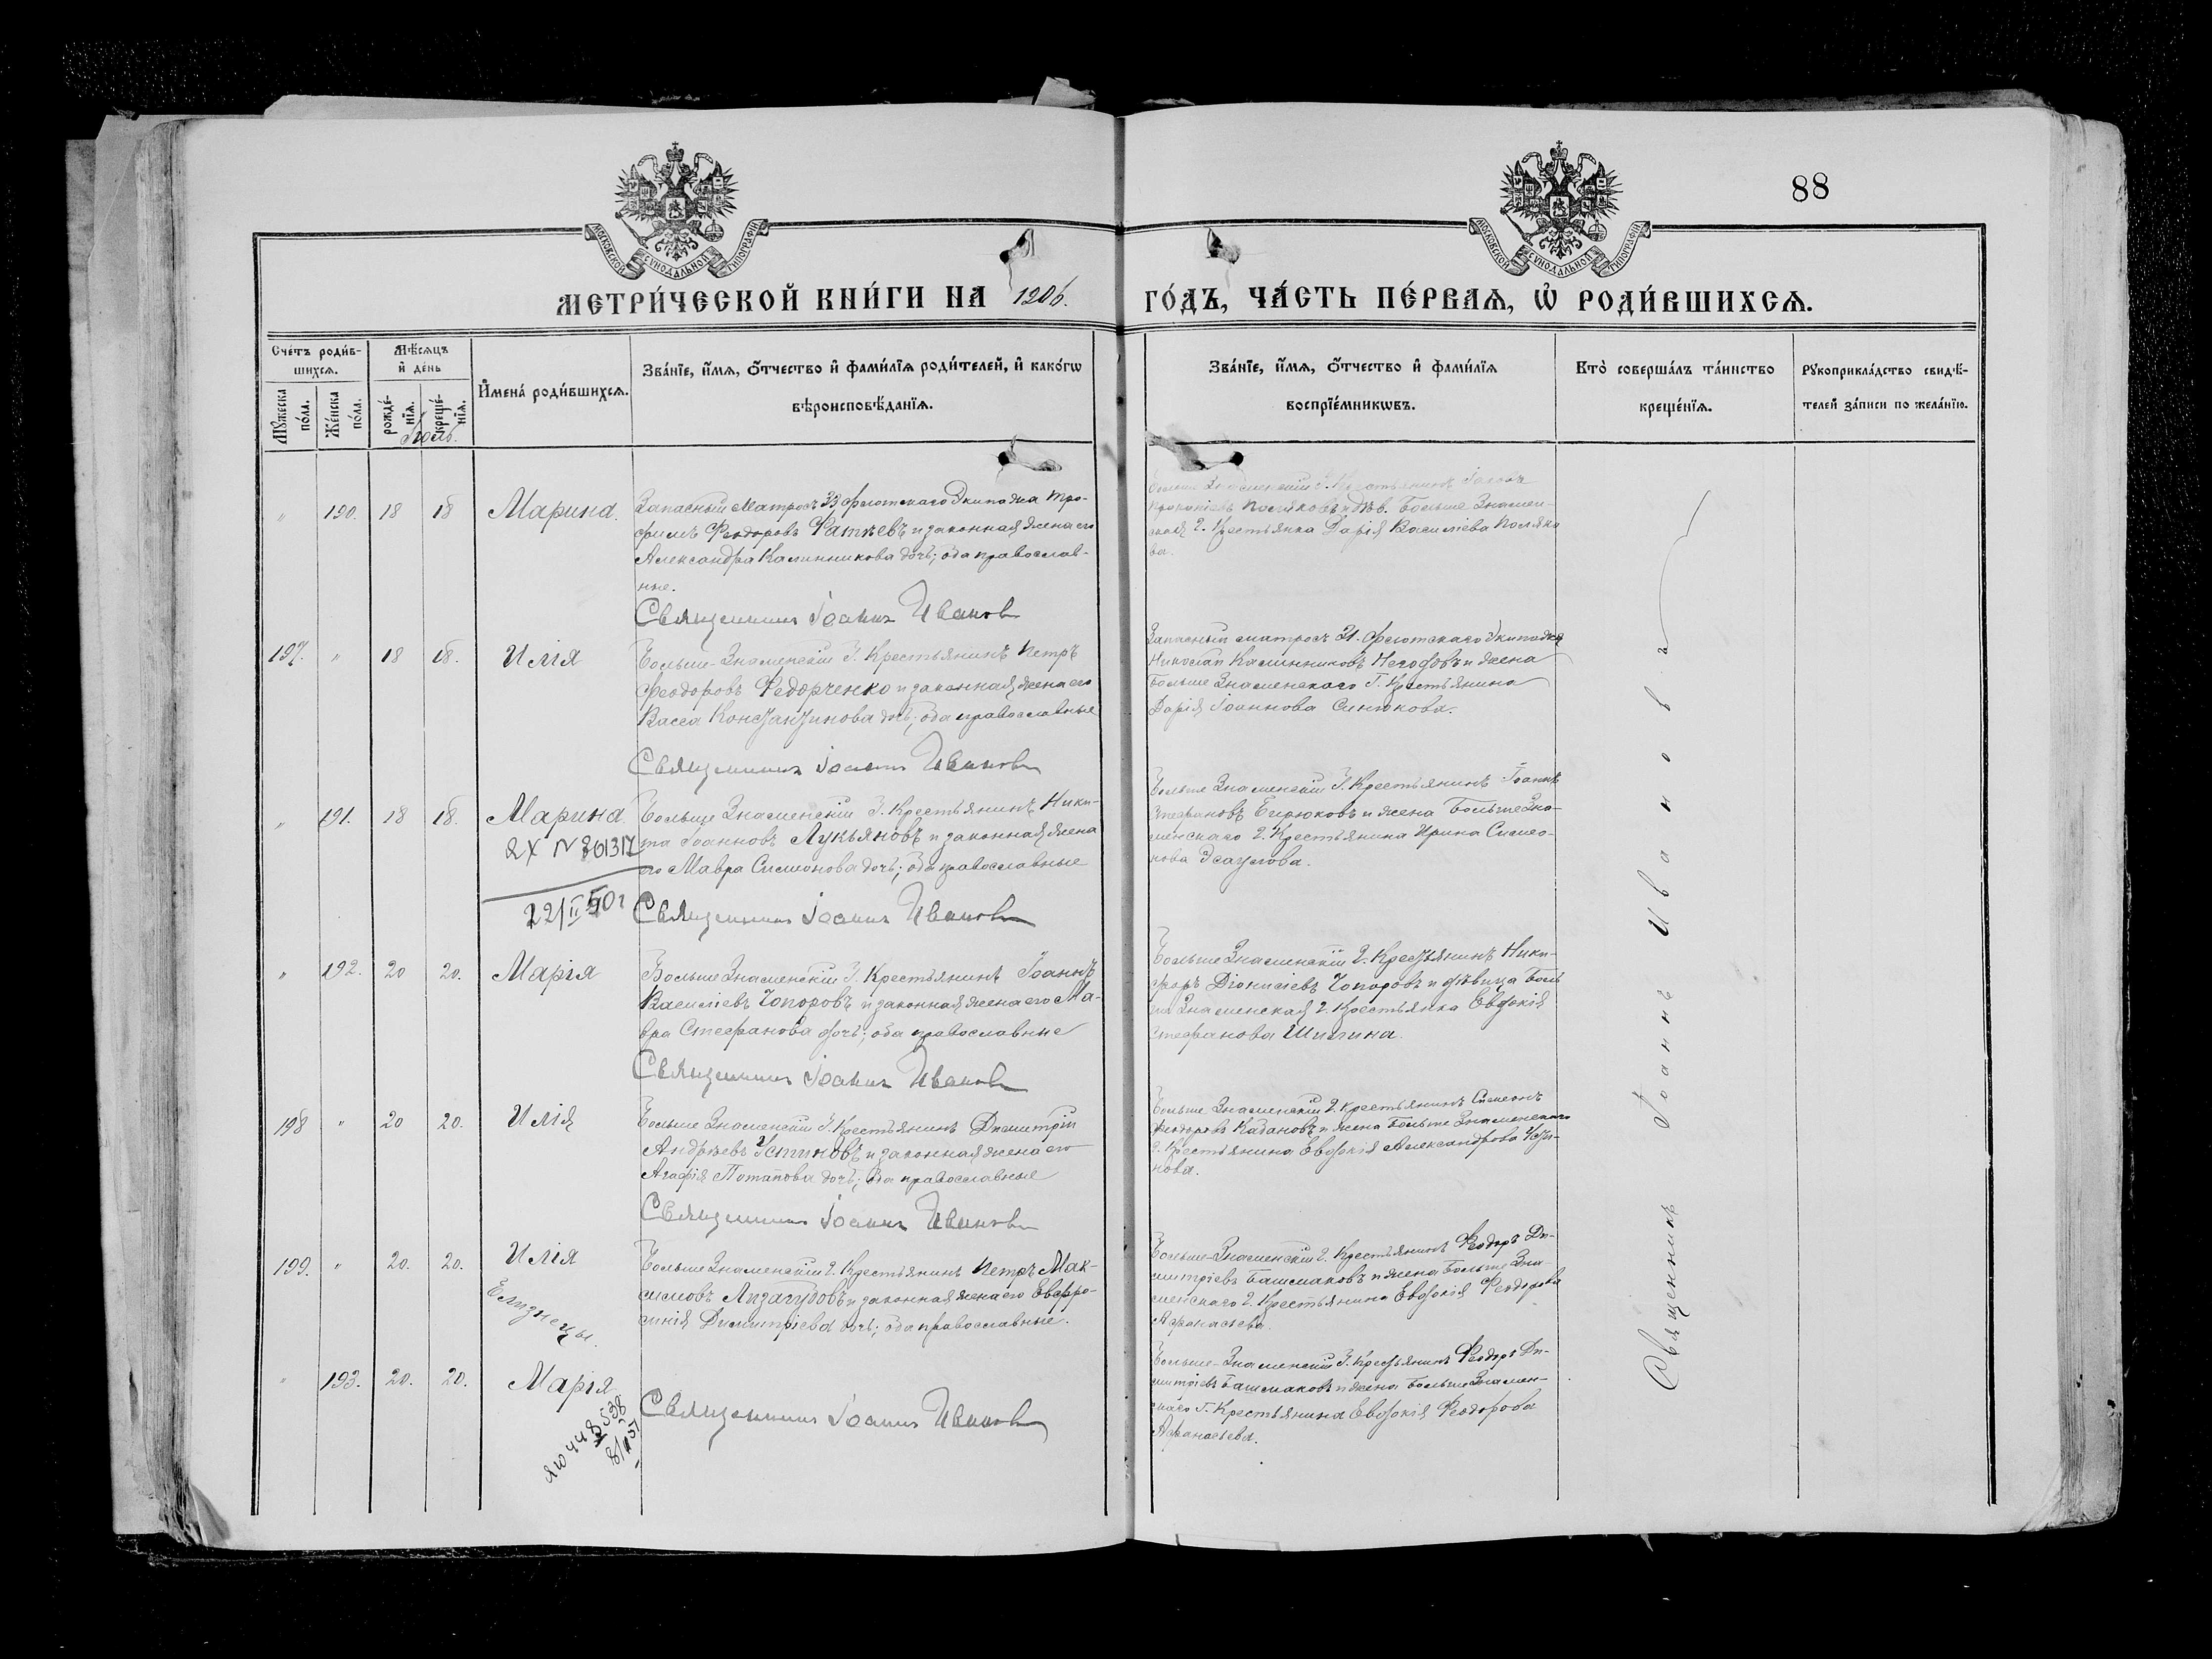 88
МОСКОВСКОЙ СѴНОДАЛЬНОЙ ТИПОГРАФІИ
МОСКОВСКОЙ СѴНОДАЛЬНОЙ ТИПОГРАФІИ
МЕТРИ́ЧЕСКОЙ КНИ́ГИ НА 1906.
ГО́ДЪ, ЧА́СТЬ ПЕ́РВАѦ, Ѡ҆ РОДИ́ВШИХСѦ.
Сче́тъ роди́в-
шихсѧ.
Мꙋ́жеска по́ла.
Же́нска по́ла.
Мѣ́сѧцъ
и҆ де́нь
рожде́-
нїѧ.
креще́-
нїѧ.
Іюль.
И҆мена̀ роди́вшихсѧ.
Зва́нїе, и҆́мѧ, ѻ҆́тчество и҆ фами́лїѧ роди́телей, и҆ како́гѡ
вѣроисповѣ́данїѧ.
Зва́нїе, и҆́мѧ, ѻ҆́тчество и҆ фами́лїѧ
воспрїе́мникѡвъ.
Кто̀ соверша́лъ та́инство
креще́нїѧ.
Рꙋкоприкла́дство свидѣ́-
телей за́писи по жела́нїю.
" 190. 18 18 Марина.
Запасный Матросъ 33 флотскаго Экипажа Тро-
фимъ Феодоровъ Фатѣевъ и законная жена его
Александра Калинникова дочь; оба православ-
ные.
Священникъ Іоаннъ Иванов
Больше Знаменскій Г. Крестьянинъ
Прокопіевъ Поляковъ и дѣв. Больше Знамен-
ская Г. Крестьянка Дарія Василіева Поляко
ва.
197. " 18 18. Илія
Больше-Знаменскій Г. Крестьянинъ Петръ
Феодоровъ Федорченко и законная жена его
Васса Константинова дочь; оба православные
Священникъ Іоаннъ Иванов
Запасный матросъ 31. флотскаго Экипажа
Николай Калинниковъ и жена
Больше Знаменскаго Г. Крестьянина
Дарія Іоаннова Синюкова.
" 191. 18 18. Марина
Больше Знаменскій Г. Крестьянинъ Ники-
та Іоанновъ Лукьяновъ и законная жена
его Мавра Симеонова дочь; оба православные
ЯХ N 801317
22/II 50г
Священникъ Іоаннъ Иванов
Больше Знаменскій Г. Крестьянинъ Іоаннъ
Стефановъ Бирюковъ и жена Больше Зна-
менскаго Г. Крестьянина Ирина Симео-
нова Эсаулова.
" 192. 20 20. Марія
Больше Знаменскій Г. Крестьянинъ Іоаннъ
Василіевъ Топоровъ и законная жена его Ма-
вра Стефанова дочь; оба православные
Священникъ Іоаннъ Иванов
Больше Знаменскій Г. Крестьянинъ Ники-
форъ Діонисіевъ Топоровъ и дѣвица Боль
ше Знаменская Г. Крестьянка Евдокія
Стефанова Шишина.
198 " 20 20. Илія
Больше Знаменскій Г. Крестьянинъ Димитрій
Андреевъ Устиновъ и законная жена его
Агафія Потапова дочь; оба православные
Священникъ Іоаннъ Иванов
Больше Знаменскій Г. Крестьянинъ Симеонъ
Феодоровъ Кабановъ и жена Больше Знаменскаго
Г. Крестьянина Евдокія Александрова Усти-
нова.
199. " 20. 20. Илія
Близнецы.
Больше Знаменскій Г. Крестьянинъ Петръ Мак-
симовъ Лизагубовъ и законная жена его Евфро-
синія Димитріева дочь; оба православные.
Больше-Знаменскій Г. Крестьянинъ Феодоръ Ди-
митріевъ Башмаковъ и жена Больше Зна-
менскаго Г. Крестьянина Евдокія Феодорова
Афанасьева.
" 193. 20. 20. Марія
ЯЮ 448538
Священникъ Іоаннъ Иванов
Больше-Знаменскій Г. Крестьянинъ Феодоръ Ди-
митріевъ Башмаковъ и жена Больше Знамен-
скаго Г. Крестьянина Евдокія Феодорова
Афанасьева.
Священникъ Іоаннъ Ивановъ